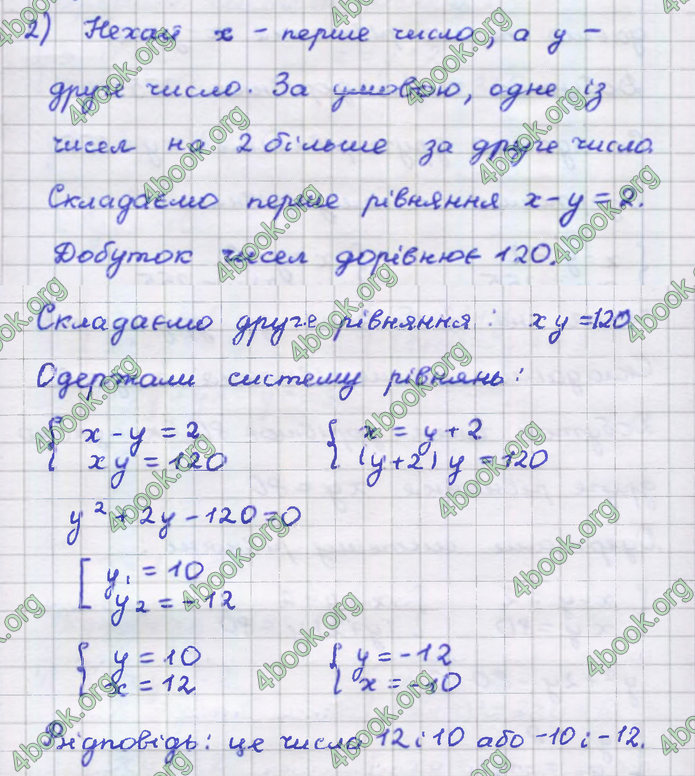 2) Нехай x - перше число, а y -
друге число. За умовою, одне із
чисел на 2 більше за друге число.
Складаємо перше рівняння x-y=2.
Добуток чисел дорівнює 120.
Складаємо друге рівняння: xy=120
Одержали систему рівнянь:
{ x-y=2 { x=y+2
{ xy=120 { (y+2)y=120
y²+2y-120=0
[ y₁=10
[ y₂=-12
{ y=10 { y=-12
{ x=12 { x=-10
Відповідь: це числа 12 і 10 або -10 і -12.
4book.org